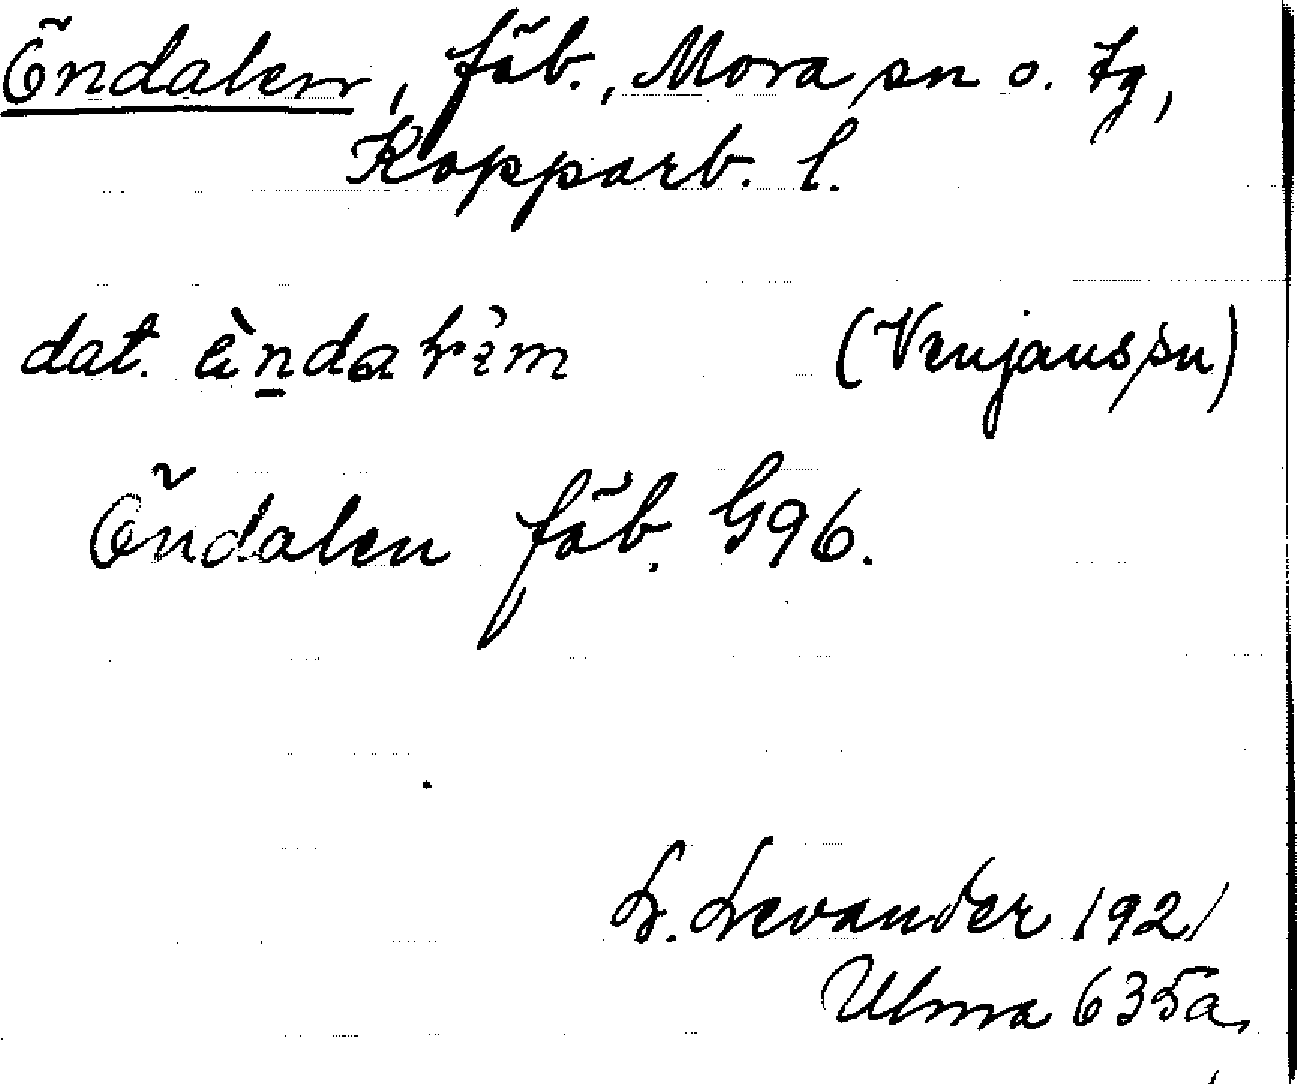 Öndalen, fäb., Mora sn o. tg,
Kopparb. l.
dat. (Venjans sn)
Öndalen fäb. G96.
L. Levander 1921
Ulma 635a,